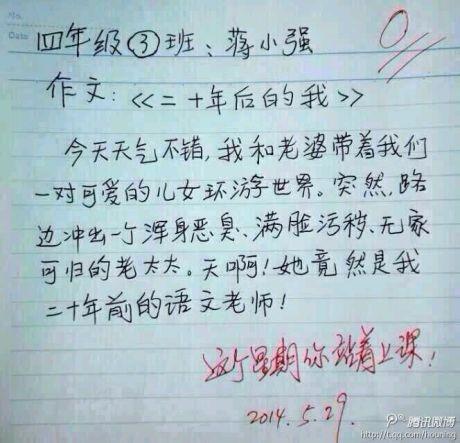 No.
Date
四年级③班：蒋小强
0
作文：《二十年后的我》
今天天气不错，我和老婆带着我们
一对可爱的儿女环游世界。突然，路
边冲出一个浑身恶臭、满脸污秽、无家
可归的老太太。天啊！她竟然是我
二十年前的语文老师！
这个星期你站着上课！
2014.5.29.
腾讯微博
http://t.qq.com/houning